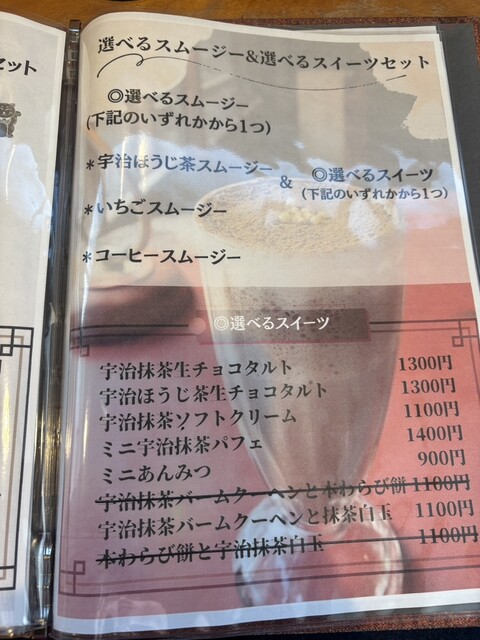 ット
選べるスムージー&選べるスイーツセット
◎選べるスムージー
(下記のいずれかから1つ)
*宇治ほうじ茶スムージー
*いちごスムージー
*コーヒースムージー
&
◎選べるスイーツ
(下記のいずれかから1つ)
◎選べるスイーツ
宇治抹茶生チョコタルト 1300円
宇治ほうじ茶生チョコタルト 1300円
宇治抹茶ソフトクリーム 1100円
ミニ宇治抹茶パフェ 1400円
ミニあんみつ 900円
宇治抹茶バームクーヘンと本わらび餅 1100円
宇治抹茶バームクーヘンと抹茶白玉 1100円
本わらび餅と宇治抹茶白玉 1100円